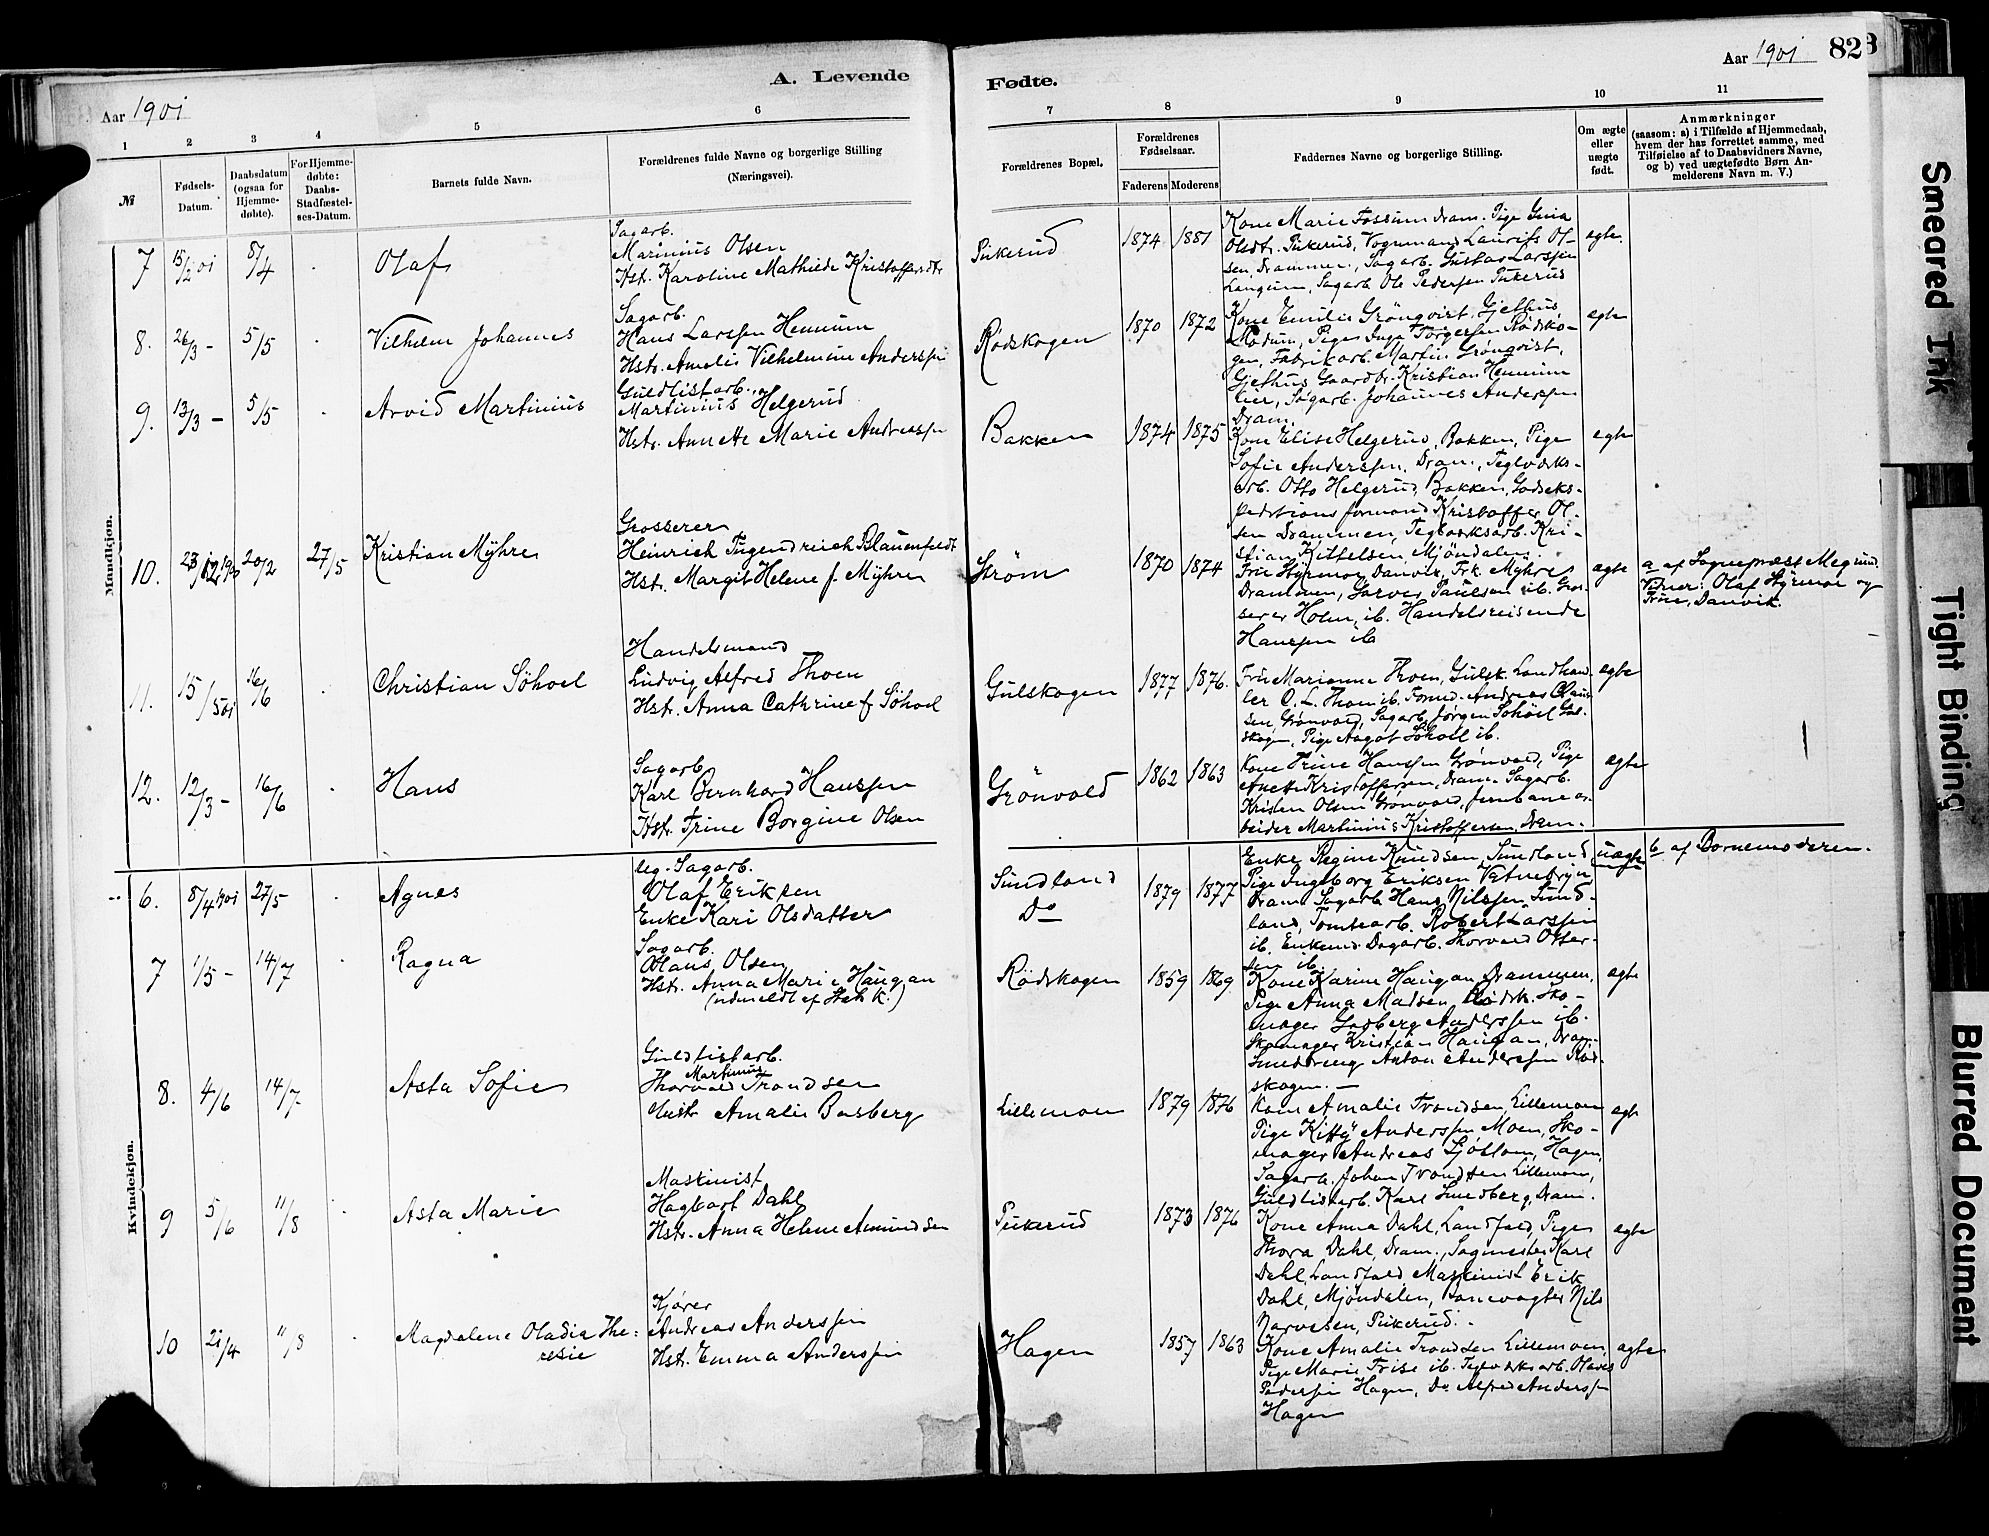 A. Levende
Aar 1901
1 2 3 4 5 6
№ Fødsels-Datum. Daabsdatum (ogsaa for Hjemmedøbte). For Hjemmedøbte: Daabs-Stadfæstelses-Datum. Barnets fulde Navn. Forældrenes fulde Navne og borgerlige Stilling (Næringsvei).
Mandkjøn.
7 15/2 01 8/4 Olaf
Sagarb.
Marinius Olsen
Hst. Karoline Mathilde Kristoffersdtr
8. 26/3 – 5/5 Vilhelm Johannes
Sagarb.
Hans Larssen Hennum
Hst. Amalie Vilhelmine Anderssen
9. 13/3 – 5/5 Arvid Martinius
Guldlistarb.
Martinius Helgerud
Hst. Annette Marie Anderssen
10. 20/2 27/5 Kristian Myhre
Grosserer
Heinrich Tugendreich Blauenfeldt
Hst. Margit Helene f. Myhre
11. 15/5 01 16/6 Christian Söhoel
Handelsmand
Ludvig Alfred Thoen
Hst. Anna Cathrine f. Söhoel
12. 12/3 – 16/6 Hans
Sagarb.
Karl Bernhard Hanssen
Hst. Trine Borgine Olsen
Kvindekjøn.
6. 8/4 1901 27/5 Agnes
Sagarb.
Olaf Eriksen
Enke Kari Olsdatter
7 1/5 – 14/7 Ragna
Sagarb.
Olaus Olsen
Hst. Anna Marie Haugan
(udmeldt af Stsk.)
8. 4/6 14/7 Asta Sofie
Guldlistarb.
Martinius
Thorvald Trondsen
Hust. Amalie Busberg
9 5/6 11/8 Asta Marie
Maskinist
Hagbart Dahl
Hst. Anna Helene Amundsen
10 21/4 11/8 Magdalene Oladia The=
resie
Kjører
Andreas Anderssen
Hst. Emma Anderssen
Fødte.
Aar 1901 82
7 8 9 10 11
Forældrenes Bopæl. Forældrenes Fødselsaar. Faderens Moderens Faddernes Navne og borgerlige Stilling. Om ægte eller uægte født. Anmærkninger (saasom: a) i Tilfælde af Hjemmedaab, hvem der har forrettet samme, med Tilføielse af to Daabsvidners Navne, og b) ved uægtefødte Børn Anmelderens Navn m. V.)
Pukerud 1874 1881 ægte.
Kone Marie Fossum Dram. Pige Gina
Olsdt. Pukerud, Vognmand Laurits Ol-
sen Drammen, Sagarb. Gustav Larssen
Langum, Sagarb. Ole Pedersen Pukerud
Rødskogen 1870 1872 ægte
Kone Emilie Grönqvist, Gjethus,
Modum, Pige Inga Torgersen Rødsko-
gen, Fabrikarb. Martin Grönqvist,
Gjethus Gaardbr. Kristian Hennum
Lier, Sagarb. Johannes Anderssen
Dram.
Bakken 1874 1875 ægte
Kone Elise Helgerud, Bakken, Pige
Sofie Anderssen, Dram., Teglverks-
arb. Otto Helgerud, Bakken, Godseks-
peditionsformand Kristoffer Ol-
sen Drammen, Teglverksarb. Kri-
stian Kittelsen Mjöndalen.
Strøm 1870 1874 ægte
Fru Styrmoe, Danvik, Frk. Myhre
Drammen, Garver Paulson ib. Gros-
serer Holm, ib. Handelsreisende
Hanssen ib
a af Sogneprest Megrund.
Vidner: Olaf Styrmoe og
Frue, Danvik.
Gulskogen 1877 1876. ægte
Fru Marianne Thoen, Gulsk. Landhand-
ler O. L. Thoen ib. Formd. Andreas Claus-
sen, Grønvold, Sagarb. Jørgen Söhoel Gul-
skogen, Pige Aagot Söhoel ib.
Grönvold 1862 1863 ægte
Kone Trine Hanssen Grønvold, Pige
Anette Kristoffersen, Dram. Sagarb.
Kristen Olsen Grønvold, Jernbanear-
beider Martinius Kristoffersen, Dram.
Sundland
Do 1879 1877 uægte
Enke Regine Knudsen, Sundland
Pige Ingeborg Eriksen
Dram Sagarb. Hans Nilssen Sund-
land, Tomtearb. Robert Larssen
ib. Enkemd. Sagarb. Thorvald Otter-
sen ib.
b af Barnemoderen.
Rødskogen 1859 1869 ægte
Kone Karine Haugan Drammen,
Pige Anna Madsen, Rødsk. Sko-
mager Gudberg Anderssen ib.
Skomager Kristian Haugan, Dram.
Smeddreng Anton Anderssen Rød-
skogen. –
Lillemoen 1879 1876 ægte
Kone Amalie Trondsen, Lillemoen
Pige Kitty Anderssen Moen, Sko-
mager Andreas Sjöblom, Hagen,
Sagarb. Johan Trondsen Lillemoen,
Guldlistarb. Karl Smedberg, Dram.
Pukerud 1873 1876 ægte
Kone Anna Dahl, Landfald, Pige
Thora Dahl, Dram., Sagmester Karl
Dahl, Landfald Maskinist Erik
Dahl, Mjöndalen, Banevogter Nils
Narvesen, Pukerud.
Hagen 1857 1863 ægte
Kone Amalie Trondsen Lillemoen,
Pige Marie Frise ib. Teglverksarb. Olaves
Pedersen Hagen, Do Alfred Anderssen
Hagen
Smeared Ink
Tight Binding
Blurred Document